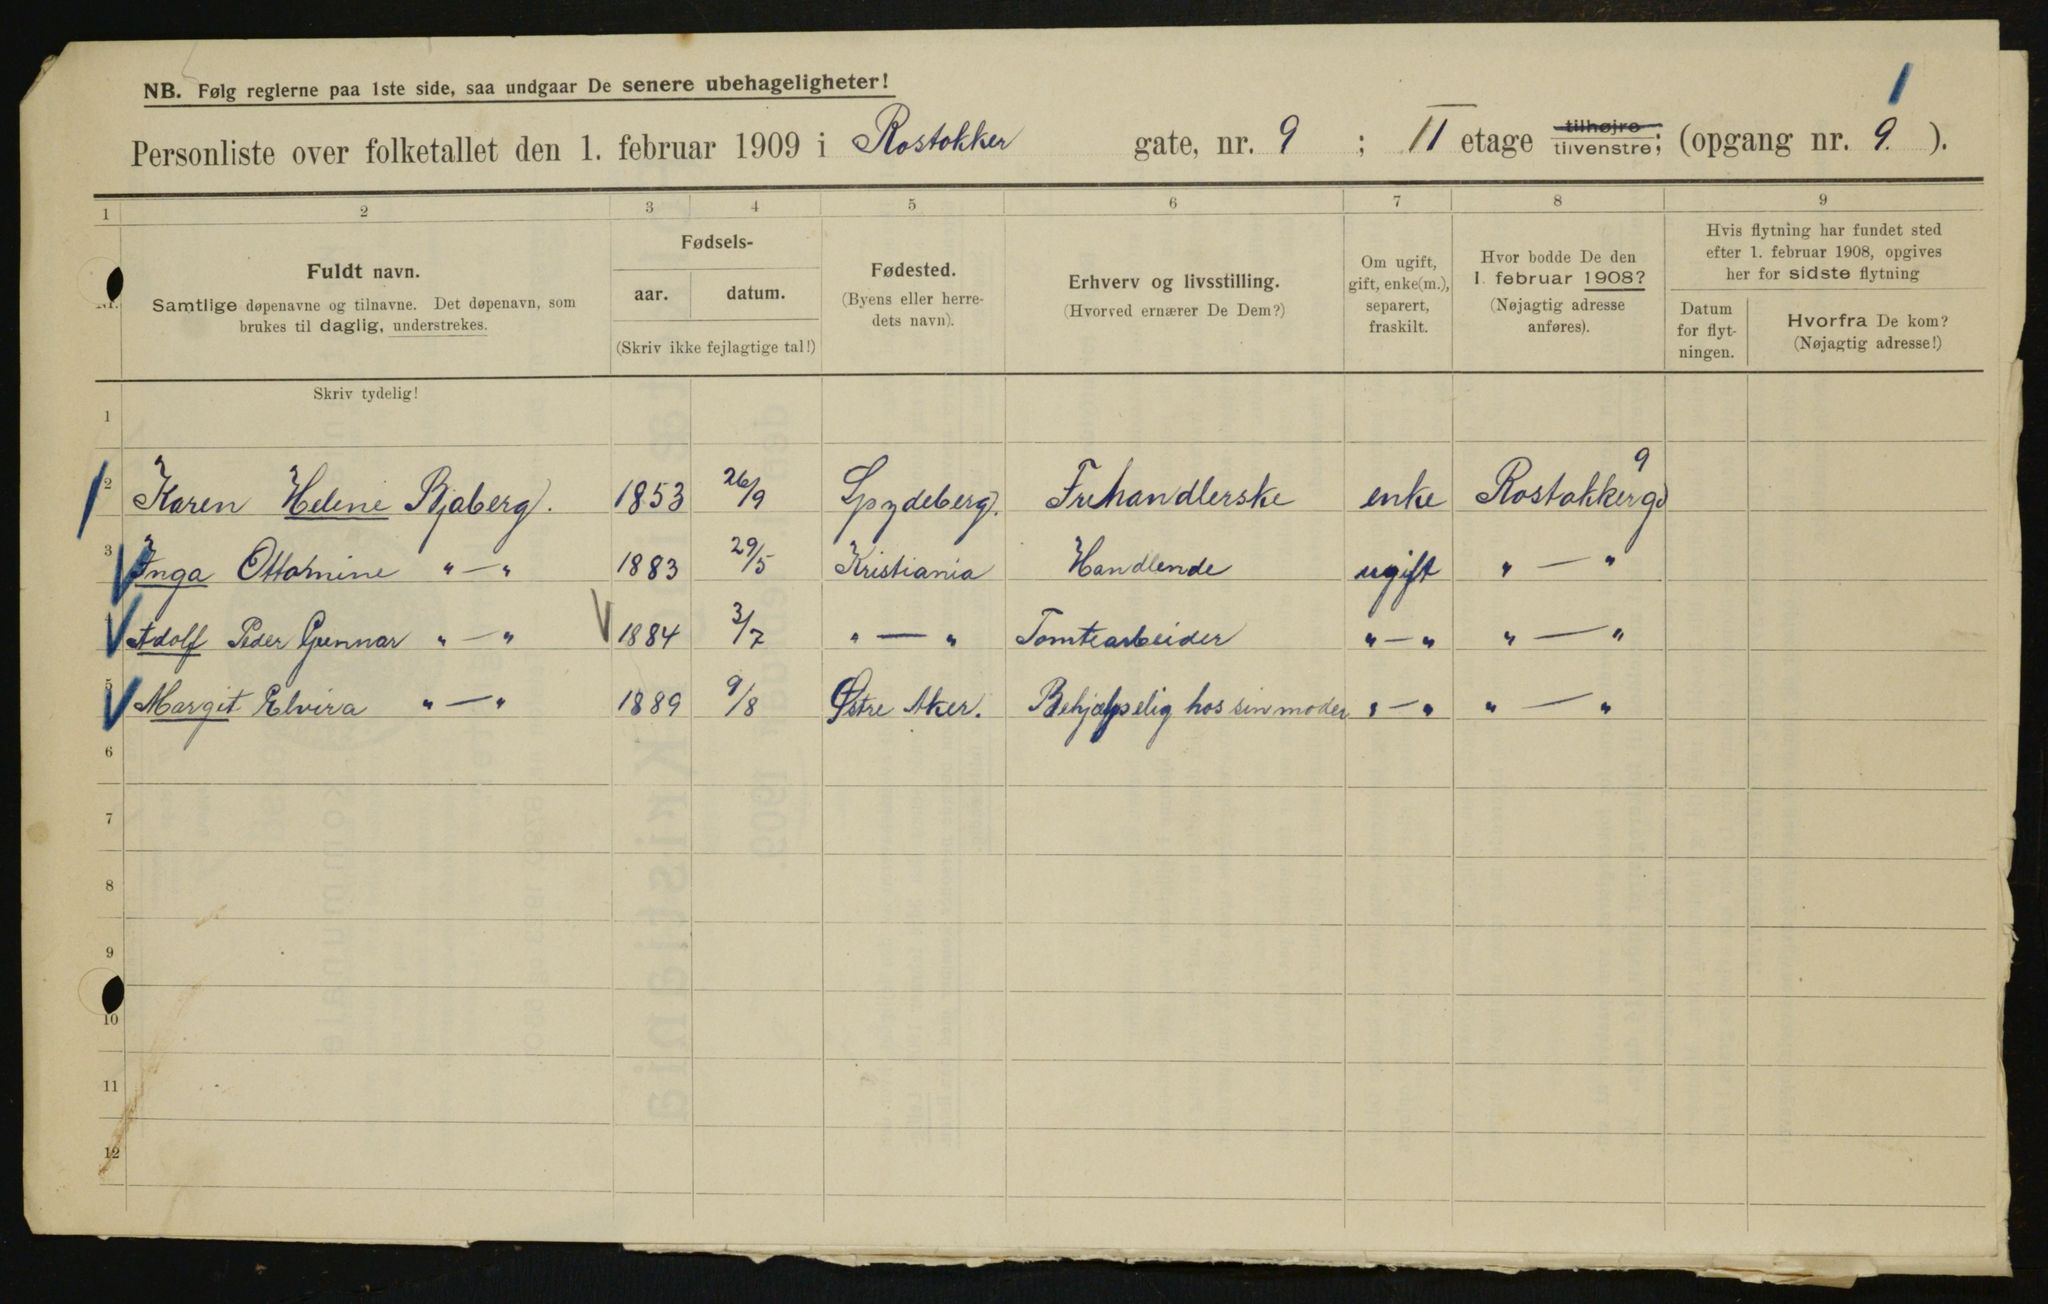 1
NB. Følg reglerne paa 1ste side, saa undgaar De senere ubehageligheter!
Personliste over folketallet den 1. februar 1909 i Rostokker gate, nr. 9 ; II etage tilhøjre tilvenstre; (opgang nr. 9. ).
1 2 3 4 5 6 7 8 9
Nr.
Fuldt navn.
Samtlige døpenavne og tilnavne. Det døpenavn, som
brukes til daglig, understrekes.
Fødsels-
aar. datum.
(Skriv ikke fejlagtige tal!)
Fødested.
(Byens eller herre-
dets navn).
Erhverv og livsstilling.
(Hvorved ernærer De Dem?)
Om ugift,
gift, enke(m.),
separert,
fraskilt.
Hvor bodde De den
1. februar 1908?
(Nøjagtig adresse
anføres).
Hvis flytning har fundet sted
efter 1. februar 1908, opgives
her for sidste flytning
Datum
for flyt-
ningen.
Hvorfra De kom?
(Nøjagtig adresse!)
Skriv tydelig!
1
2 Karen Helene Bjaberg. 1853 26/9 Spydeberg. Frihandlerske enke Rostokkerg 9
3 Inga Ottomine " — " 1883 29/5 Kristiania Handlende ugift " — "
Adolf Peder Gunnar " — " 1884 3/7 " — " Tomtearbeider " — " " — "
5 Margit Elvira " — " 1889 9/8 Østre Aker. Behjælpselig hos sin moder " — " " — "
6
7
8
9
10
11
12